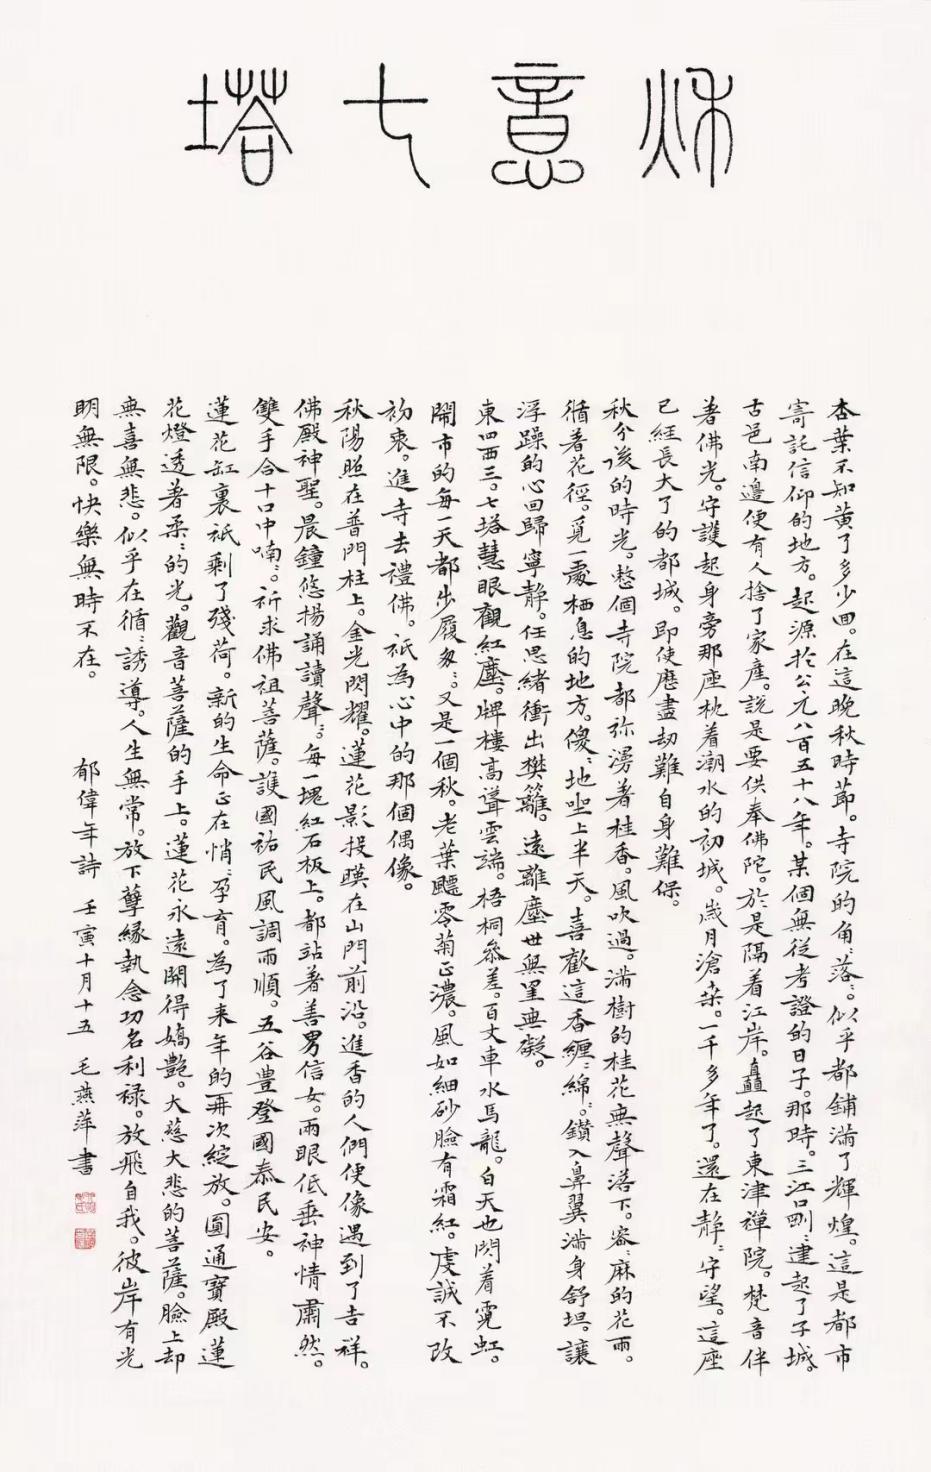 秋意七塔
杏葉不知黃了多少回。在這晚秋時節。寺院的角:落:。似乎都鋪滿了輝煌。這是都市
寄託信仰的地方。起源於公元八百五十八年。某個無從考證的日子。那時。三江口剛:建起了子城。
古邑南邊便有人捨了家產。說是要供奉佛陀。於是隔着江岸。矗起了東津禪院。梵音伴
著佛光。守護起身旁那座枕着潮水的初城。歲月滄桑。一千多年了。還在靜:守望。這座
已經長大了的都城。即使歷盡劫難自身難保。
秋分後的時光。整個寺院都弥漫着桂香。風吹過。滿樹的桂花無聲落下。密:麻的花雨。
循着花徑。覓一處栖息的地方。傻:地坐上半天。喜歡這香纏:綿:。鑽入鼻翼滿身舒坦。讓
浮躁的心回歸寧静。任思緒衝出樊籬。遠離塵世無罣無礙。
東四西三。七塔慧眼觀紅塵。牌樓高聳雲端。梧桐叅差。百丈車水馬龍。白天也閃着霓虹。
鬧市的每一天都步履匆:。又是一個秋。老葉飄零菊正濃。風如細砂臉有霜紅。虔誠不改
初衷。進寺去禮佛。祇為心中的那個偶像。
秋陽照在普門柱上。金光閃耀。蓮花影投暎在山門前沿。進香的人們便像遇到了吉祥。
佛殿神聖。晨鐘悠揚誦讀聲:。每一塊紅石板上。都站著善男信女。兩眼低垂神情肅然。
雙手合十口中喃:。祈求佛祖菩薩。護國祐民風調雨順。五谷豊登國泰民安。
蓮花缸裏祇剩了殘荷。新的生命正在悄:孕育。為了来年的再次綻放。圓通寶殿蓮
花燈透着柔:的光。觀音菩薩的手上。蓮花永遠開得嬌艷。大慈大悲的菩薩。臉上却
無喜無悲。似乎在循:誘導。人生無常。放下孽緣執念功名利祿。放飛自我。彼岸有光
明無限。快樂無時不在。 郁偉年詩 壬寅十月十五 毛燕萍書